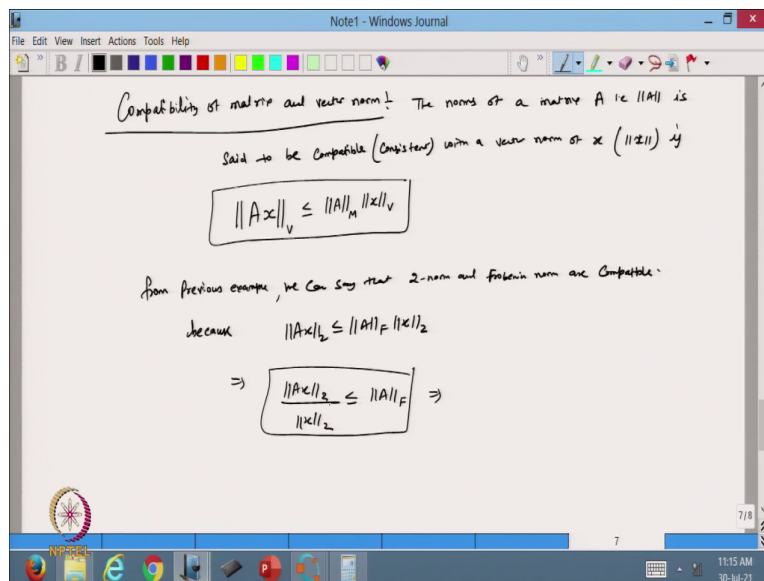 Note1 - Windows Journal
File Edit View Insert Actions Tools Help
Compatibility of matrix and vector norm! The norms of a matrix A i.e ||A|| is
said to be compatible (consistent) with a vector norm of x (||x||) if
||Ax||_V ≤ ||A||_M ||x||_V
from previous example, we can say that 2-norm and frobenin norm are compatible.
because ||Ax||_2 ≤ ||A||_F ||x||_2
⇒ ||Ax||_2 / ||x||_2 ≤ ||A||_F ⇒
7/8
7
NPTEL
11:15 AM
30-Jul-21